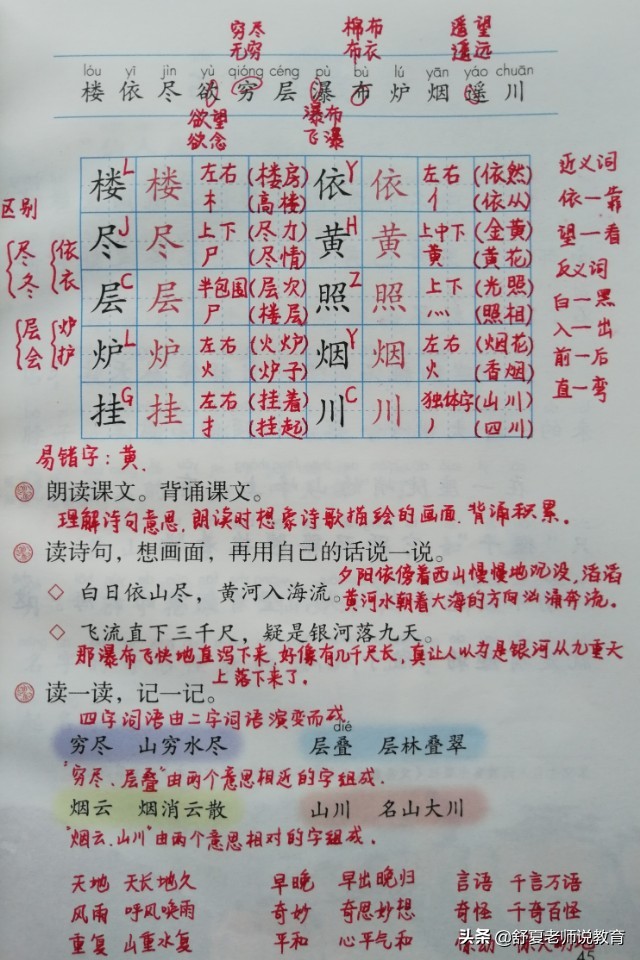 穷尽 棉布 遥望
无穷 布衣 遥远
lóu yī jìn yù qióng céng pù bù lú yān yáo chuān
楼 依 尽 欲 穷 层 瀑 布 炉 烟 遥 川
欲望 瀑布
欲念 飞瀑
近义词
依—靠
望—看
反义词
白—黑
入—出
前—后
直—弯
区别
尽 依
冬 衣
层 炉
会 护
楼 L 楼 左右 木 (楼房) (高楼) 依 Y 依 左右 亻 (依然) (依从)
尽 J 尽 上下 尸 (尽力) (尽情) 黄 H 黄 上中下 黄 (金黄) (黄花)
层 C 层 半包围 尸 (层次) (楼层) 照 Z 照 上下 灬 (光照) (照相)
炉 L 炉 左右 火 (火炉) (炉子) 烟 Y 烟 左右 火 (烟花) (香烟)
挂 G 挂 左右 扌 (挂着) (挂起) 川 C 川 独体字 丿 (山川) (四川)
易错字：黄.
朗读课文。背诵课文。
理解诗句意思,朗读时想象诗歌描绘的画面.背诵积累。
读诗句，想画面，再用自己的话说一说。
夕阳依傍着西山慢慢地沉没,滔滔
◇ 白日依山尽，黄河入海流。
黄河水朝着大海的方向汹涌奔流。
◇ 飞流直下三千尺，疑是银河落九天。
那瀑布飞快地直泻下来,好像有几千尺长,真让人以为是银河从九重天
上落下来了.
读一读，记一记。
四字词语由二字词语演变而成
dié
穷尽 山穷水尽 层叠 层林叠翠
"穷尽、层叠"由两个意思相近的字组成.
烟云 烟消云散 山川 名山大川
"烟云.山川"由两个意思相对的字组成.
天地 天长地久 早晚 早出晚归 言语 千言万语
风雨 呼风唤雨 奇妙 奇思妙想 奇怪 千奇百怪
重复 山重水复 平和 心平气和
头条 @舒夏老师说教育
45